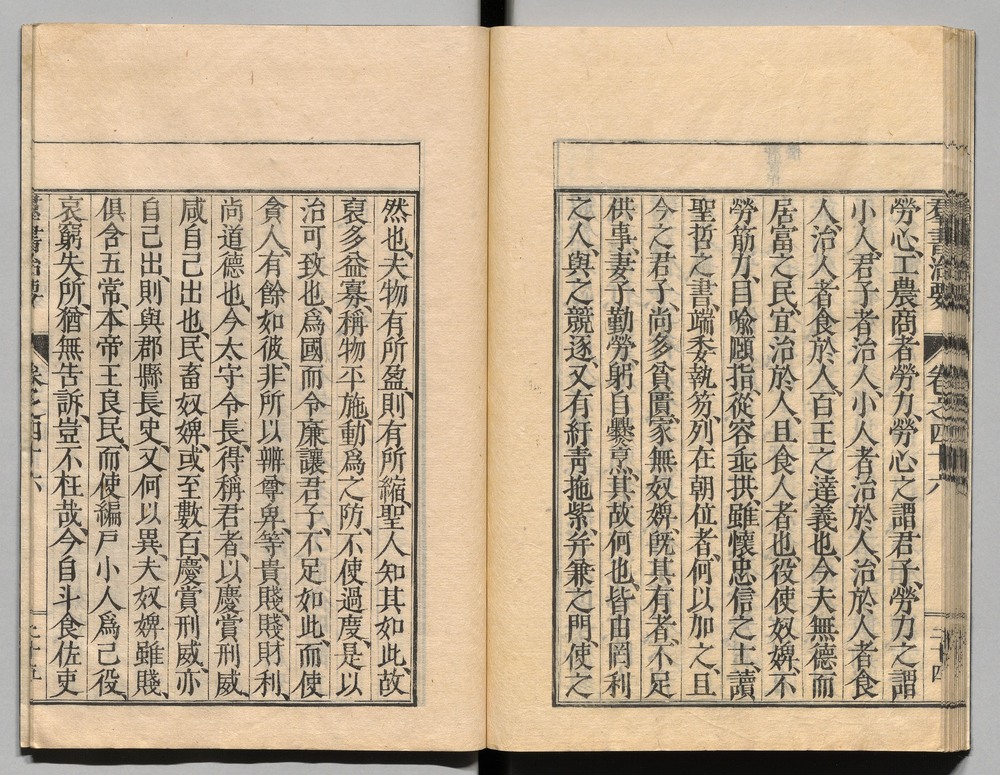 群書治要 卷之四十六
勞心、工農商者勞力、勞心之謂君子、勞力之謂
小人、君子者治人、小人者治於人、治於人者食
人、治人者食於人、百王之達義也、今夫無德而
居富之民、宜治於人、且食人者也、役使奴婢、不
勞筋力、目喩頤指、從容垂拱、雖懷忠信之士、讀
聖哲之書、端委執笏、列在朝位者、何以加之、且
今之君子、尚多貧匱、家無奴婢、旣其有者、不足
供事、妻子勤勞、躬自爨烹、其故何也、皆由罔利
之人、與之競逐、又有紆青拖紫、幷兼之門、使之
然也、夫物有所盈、則有所縮、聖人知其如此、故
裒多益寡、稱物平施、動爲之防、不使過度、是以
治可致也、爲國而令廉讓君子、不足如此、而使
貪人有餘如彼、非所以辨尊卑、等貴賤、賤財利、
尚道德也、今太守令長、得稱君者、以慶賞刑威
咸自己出也、民畜奴婢、或至數百、慶賞刑威、亦
自己出、則與郡縣長史、又何以異、夫奴婢雖賤、
俱含五常、本帝王良民、而使編戶小人爲己役、
哀窮失所、猶無告訴、豈不枉哉、今自斗食佐史
群書治要 卷之四十六